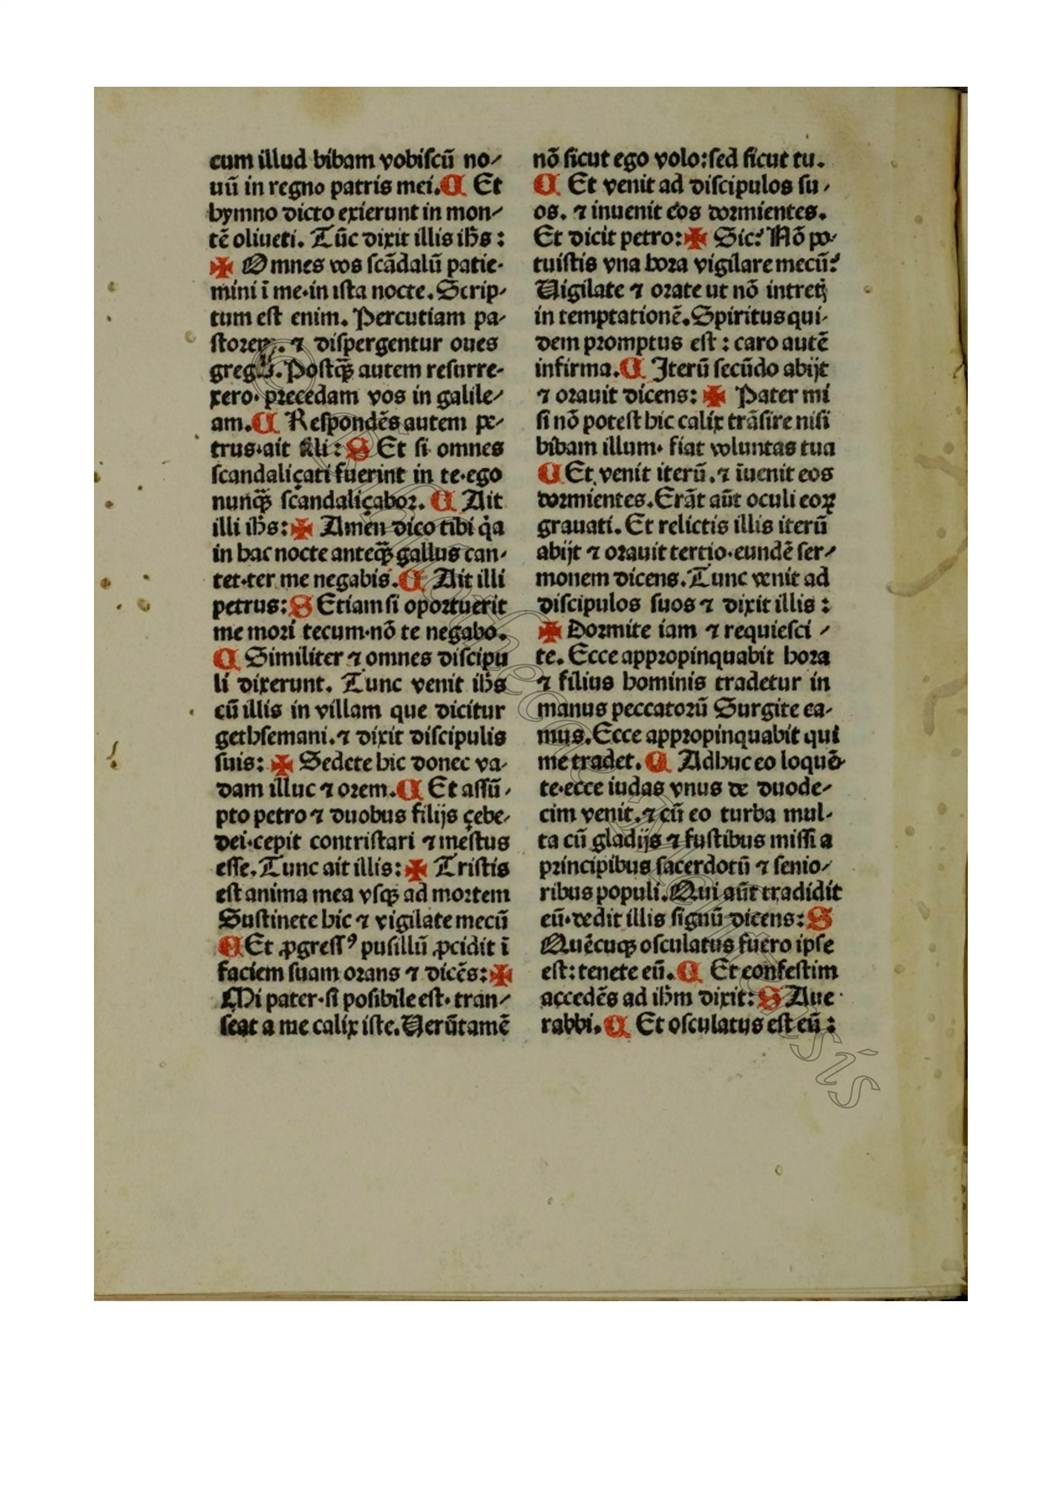 cum illud bibam vobiscū no⸗
uū in regno patris mei. C Et
hymno dicto exierunt in mon⸗
tē oliueti. Tūc dixit illis ihs :
✠ Omnes vos scādalū patie⸗
mini ī me·in ista nocte. Scrip⸗
tum est enim. Percutiam pa⸗
storem. ⁊ dispergentur oues
gregis. Postꝙ̄ autem resurre⸗
xero· precedam vos in galile⸗
am. C Respondēs autem pe⸗
trus·ait illi : S Et si omnes
scandaliçati fuerint in te·ego
nunꝙ̄ scandaliçabor. C Ait
illi ihs: ✠ Amen dico tibi q̇a
in hac nocte anteꝙ̄ gallus can⸗
tet·ter me negabis. C Ait illi
petrus: S Etiam si oportuerit
me mori tecum·nō te negabo.
C Similiter ⁊ omnes discipu
li dixerunt. Tunc venit ihs
cū illis in villam que dicitur
gethsemani. ⁊ dixit discipulis
suis: ✠ Sedete hic donec va⸗
dam illuc ⁊ orem. C Et assū⸗
pto petro ⁊ duobus filijs çebe⸗
dei·cepit contristari ⁊ mestus
esse. Tunc ait illis: ✠ Tristis
est anima mea vsqꝫ ad mortem
Sustinete hic ⁊ vigilate mecū
C Et ꝓgressꝰ pusillū ꝓcidit ī
faciem suam orans ⁊ dicēs: ✠
Mi pater·si posibile est· tran⸗
seat a me calix iste. Verūtamē
nō sicut ego volo: sed sicut tu.
C Et venit ad discipulos su⸗
os. ⁊ inuenit eos dormientes.
Et dicit petro: ✠ Sic? Nō po⸗
tuistis vna hora vigilare mecū?
Vigilate ⁊ orate ut nō intretꝭ
in temptationē. Spiritus qui⸗
dem promptus est : caro autē
infirma. C Iterū secūdo abijt
⁊ orauit dicens: ✠ Pater mi
si nō potest hic calix trāsire nisi
bibam illum· fiat voluntas tua
C Et venit iterū. ⁊ īuenit eos
dormientes. Erāt aūt oculi eoꝝ
grauati. Et relictis illis iterū
abijt ⁊ orauit tertio·eundē ser⸗
monem dicens. Tunc venit ad
discipulos suos ⁊ dixit illis :
✠ Dormite iam ⁊ requiesci⸗
te. Ecce appropinquabit hora
⁊ filius hominis tradetur in
manus peccatorū Surgite ea⸗
mus. Ecce appropinquabit qui
me tradet. C Adhuc eo loquē⸗
te·ecce iudas vnus de duode⸗
cim venit. ⁊ cū eo turba mul⸗
ta cū gladijs ⁊ fustibus missi a
principibus sacerdotū ⁊ senio⸗
ribus populi. Qui aūt tradidit
eū·dedit illis signū dicens: S
Quēcuqꝫ osculatus fuero ipse
est: tenete eū. C Et confestim
accedēs ad ihm dixit: S Aue
rabbi. C Et osculatus est eū :